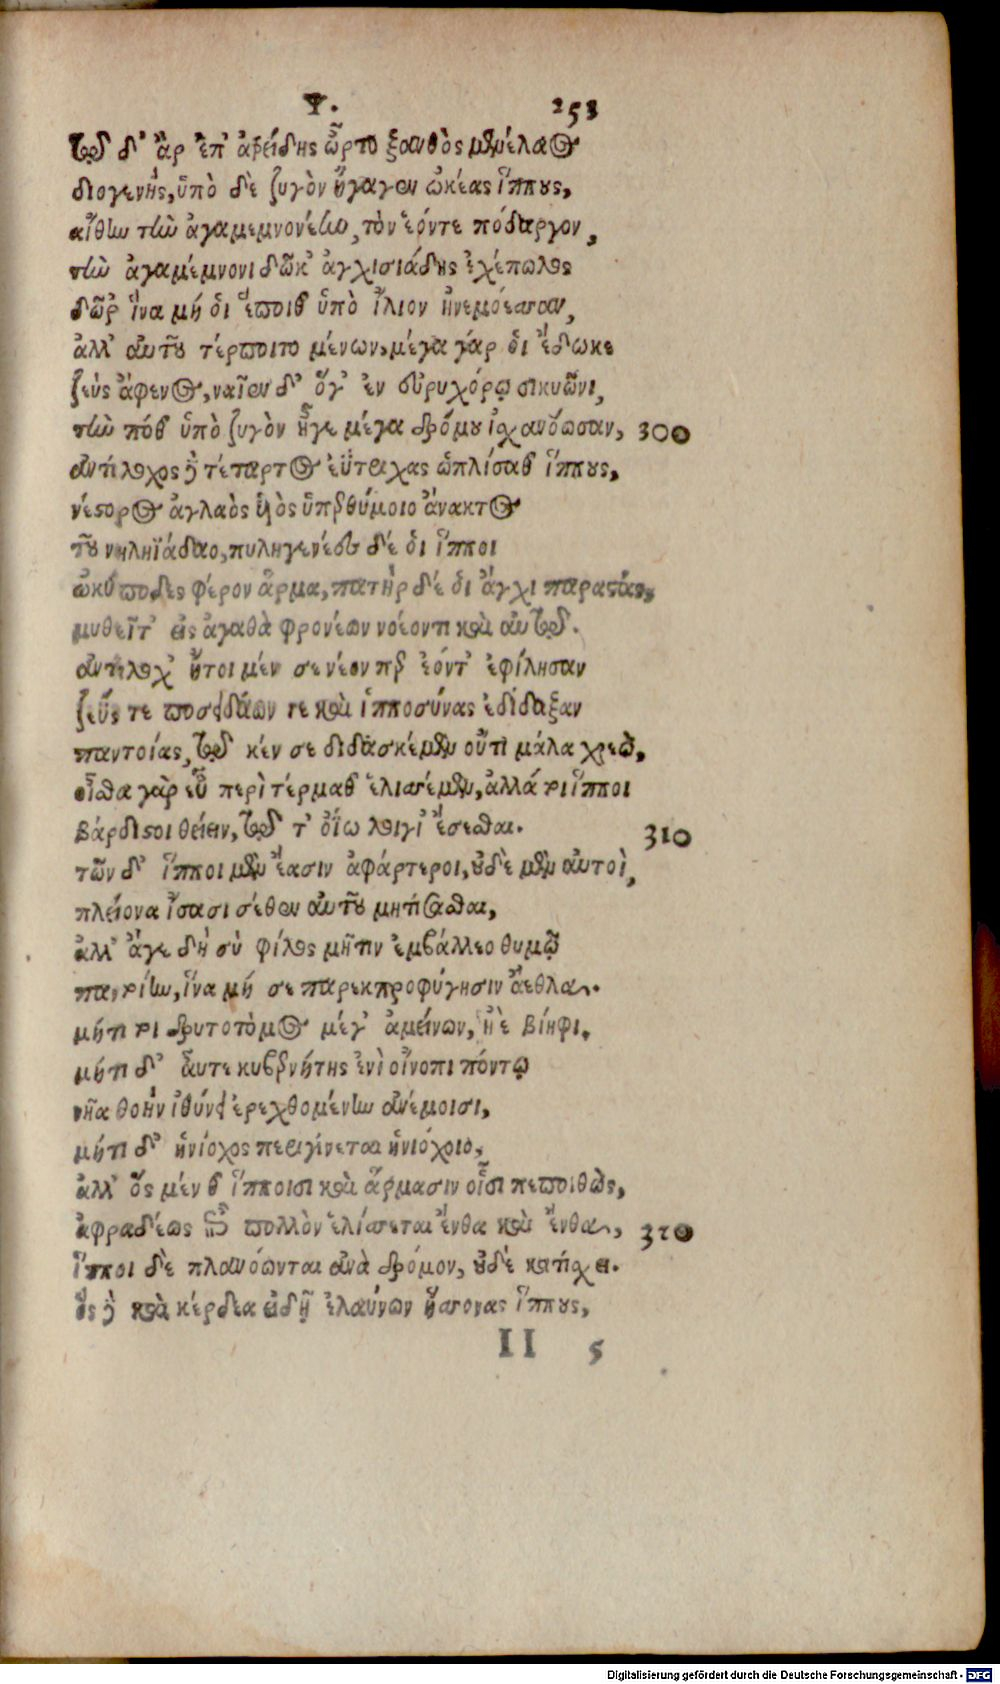 Ψ. 253
τῷ δ' ἂρ ἐπ' ἀτρείδης ὦρτο ξανθὸς μενέλαος
διογενὴς, ὑπὸ δὲ ζυγὸν ἤγαγεν ὠκέας ἵππους,
αἴθην τὴν ἀγαμεμνονέην, τὸν ἑόντε πόδαργον,
τὴν ἀγαμέμνονι δῶκ' ἀγχισιάδης ἐχέπωλος
δῶρ' ἵνα μή ὁι ἕποιθ' ὑπὸ ἴλιον ἠνεμόεσσαν,
ἀλλ' αὐτοῦ τέρποιτο μένων, μέγα γάρ ὁι ἔδωκε
ζεὺς ἄφενος, ναῖεν δ' ὅγ' ἐν εὐρυχόρῳ σικυῶνι,
τὴν πόθ' ὑπὸ ζυγὸν ἦγε μέγα δρόμου ἰχανόωσαν, 300
ἀντίλοχος δὲ τέταρτος ἐΰτριχας ὡπλίσαθ' ἵππους,
νέστορος ἀγλαὸς ὑιὸς ὑπερθύμοιο ἄνακτος
τοῦ νηληϊάδαο, πυληγενέες δέ ὁι ἵπποι
ὠκύποδες φέρον ἅρμα, πατὴρ δέ ὁι ἄγχι παραστάς,
μυθεῖτ' εἰς ἀγαθὰ φρονέων νοέοντι καὶ αὐτῷ.
ἀντίλοχ' ἤτοι μέν σε νέον περ ἐόντ' ἐφίλησαν
ζεύς τε ποσειδάων τε καὶ ἱπποσύνας ἐδίδαξαν
παντοίας, τῷ κέν σε διδασκέμεν οὔτι μάλα χρεώ,
οἶσθα γὰρ εὖ περὶ τέρμαθ' ἑλισσέμεν, ἀλλά τοι ἵπποι
βάρδιστοι θείειν, τῷ τ' ὀΐω λοίγι' ἔσεσθαι. 310
τῶν δ' ἵπποι μὲν ἔασιν ἀφάρτεροι, οὐδὲ μὲν αὐτοὶ,
πλείονα ἴσασι σέθεν αὐτοῦ μητίσασθαι,
ἀλλ' ἄγε δὴ σὺ φίλος μῆτιν ἐμβάλλεο θυμῷ
παντοίην, ἵνα μή σε παρεκπροφύγησιν ἄεθλα.
μήτι τοι δρυτοτόμος μέγ' ἀμείνων, ἠὲ βίηφι.
μήτι δ' αὖτε κυβερνήτης ἐνὶ οἴνοπι πόντῳ
νῆα θοὴν ἰθύνει ἐρεχθομένην ἀνέμοισι,
μήτι δ' ἡνίοχος περιγίνεται ἡνιόχοιο,
ἀλλ' ὃς μέν θ' ἵπποισι καὶ ἅρμασιν οἷσι πεποιθὼς,
ἀφραδέως ἐπὶ πολλὸν ἑλίσσεται ἔνθα καὶ ἔνθα, 320
ἵπποι δὲ πλανόωνται ἀνὰ δρόμον, οὐδὲ κατίσχει.
ὃς δὲ κε κέρδεα εἰδῇ ἐλαύνων ἥσσονας ἵππους,
II 5
Digitalisierung gefördert durch die Deutsche Forschungsgemeinschaft - DFG